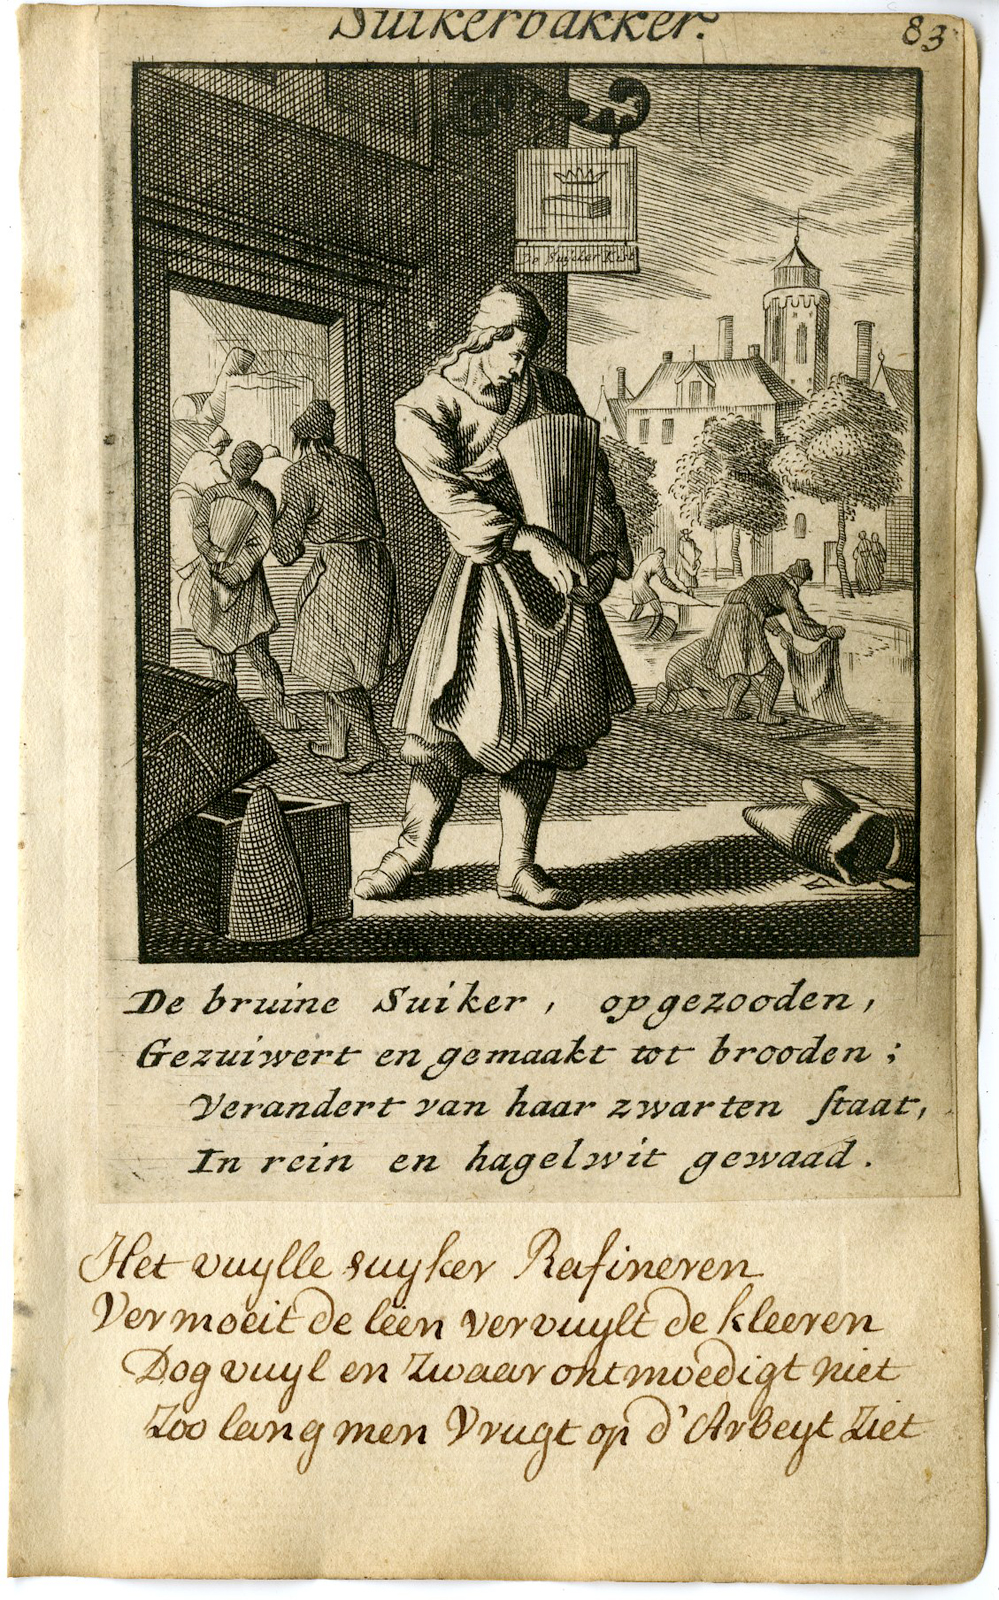 Suikerbakker.
83
De Suyker Kist
De bruine Suiker, opgezooden,
Gezuiwert en gemaakt tot brooden;
Verandert van haar zwarten ſtaat,
In rein en hagelwit gewaad.
Het vuylle suyker Rafineren
Vermoeit de leen vervuylt de kleeren
Dog vuyl en zwaar ontmoedigt niet
Zoo lang men Vrugt op d'Arbeyt Ziet